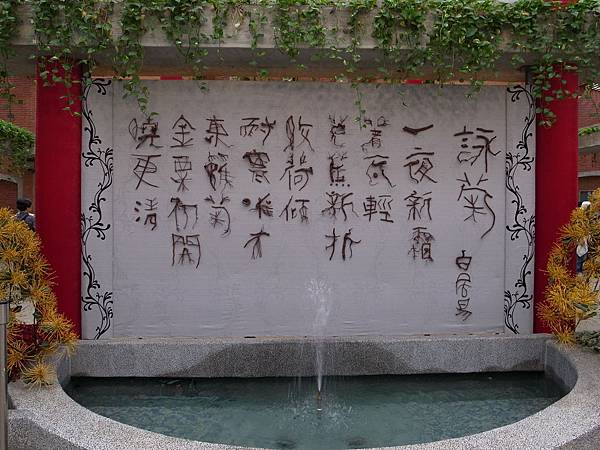 詠菊
白居易
一夜新霜
著瓦輕
芭蕉新折
敗荷傾
耐寒唯有
東籬菊
金粟初開
曉更清